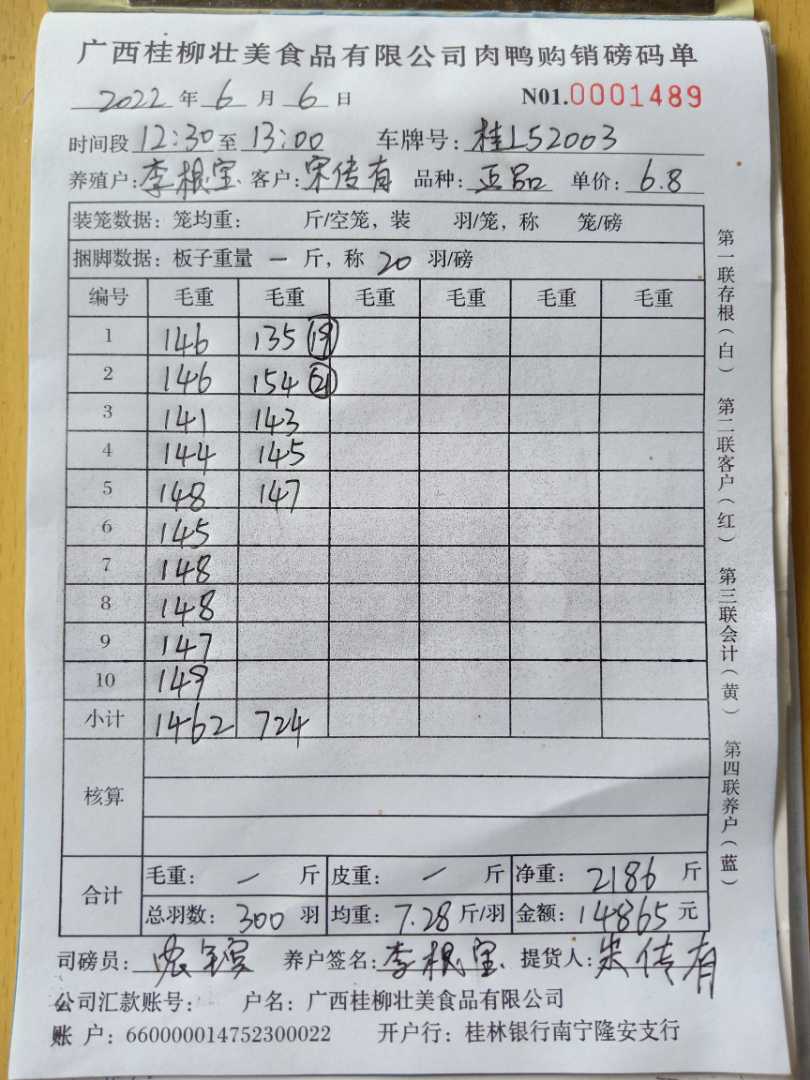 广西桂柳壮美食品有限公司肉鸭购销磅码单
2022 年 6 月 6 日 N01.0001489
时间段 12:30 至 13:00 车牌号: 桂L52003
养殖户: 李根宝、客户: 宋传有 品种: 正品 单价: 6.8
装笼数据: 笼均重: 斤/空笼, 装 羽/笼, 称 笼/磅
捆脚数据: 板子重量 一 斤, 称 20 羽/磅
编号 毛重 毛重 毛重 毛重 毛重 毛重
1 146 135 19
2 146 154 21
3 141 143
4 144 145
5 148 147
6 145
7 148
8 148
9 147
10 149
小计 1462 724
核算
合计 毛重: 一 斤 皮重: 一 斤 净重: 2186 斤
总羽数: 300 羽 均重: 7.28 斤/羽 金额: 14865 元
司磅员: 养户签名: 李根宝、提货人: 宋传有
公司汇款账号: 户名: 广西桂柳壮美食品有限公司
账 户: 660000014752300022 开户行: 桂林银行南宁隆安支行
第一联存根(白) 第二联客户(红) 第三联会计(黄) 第四联养户(蓝)